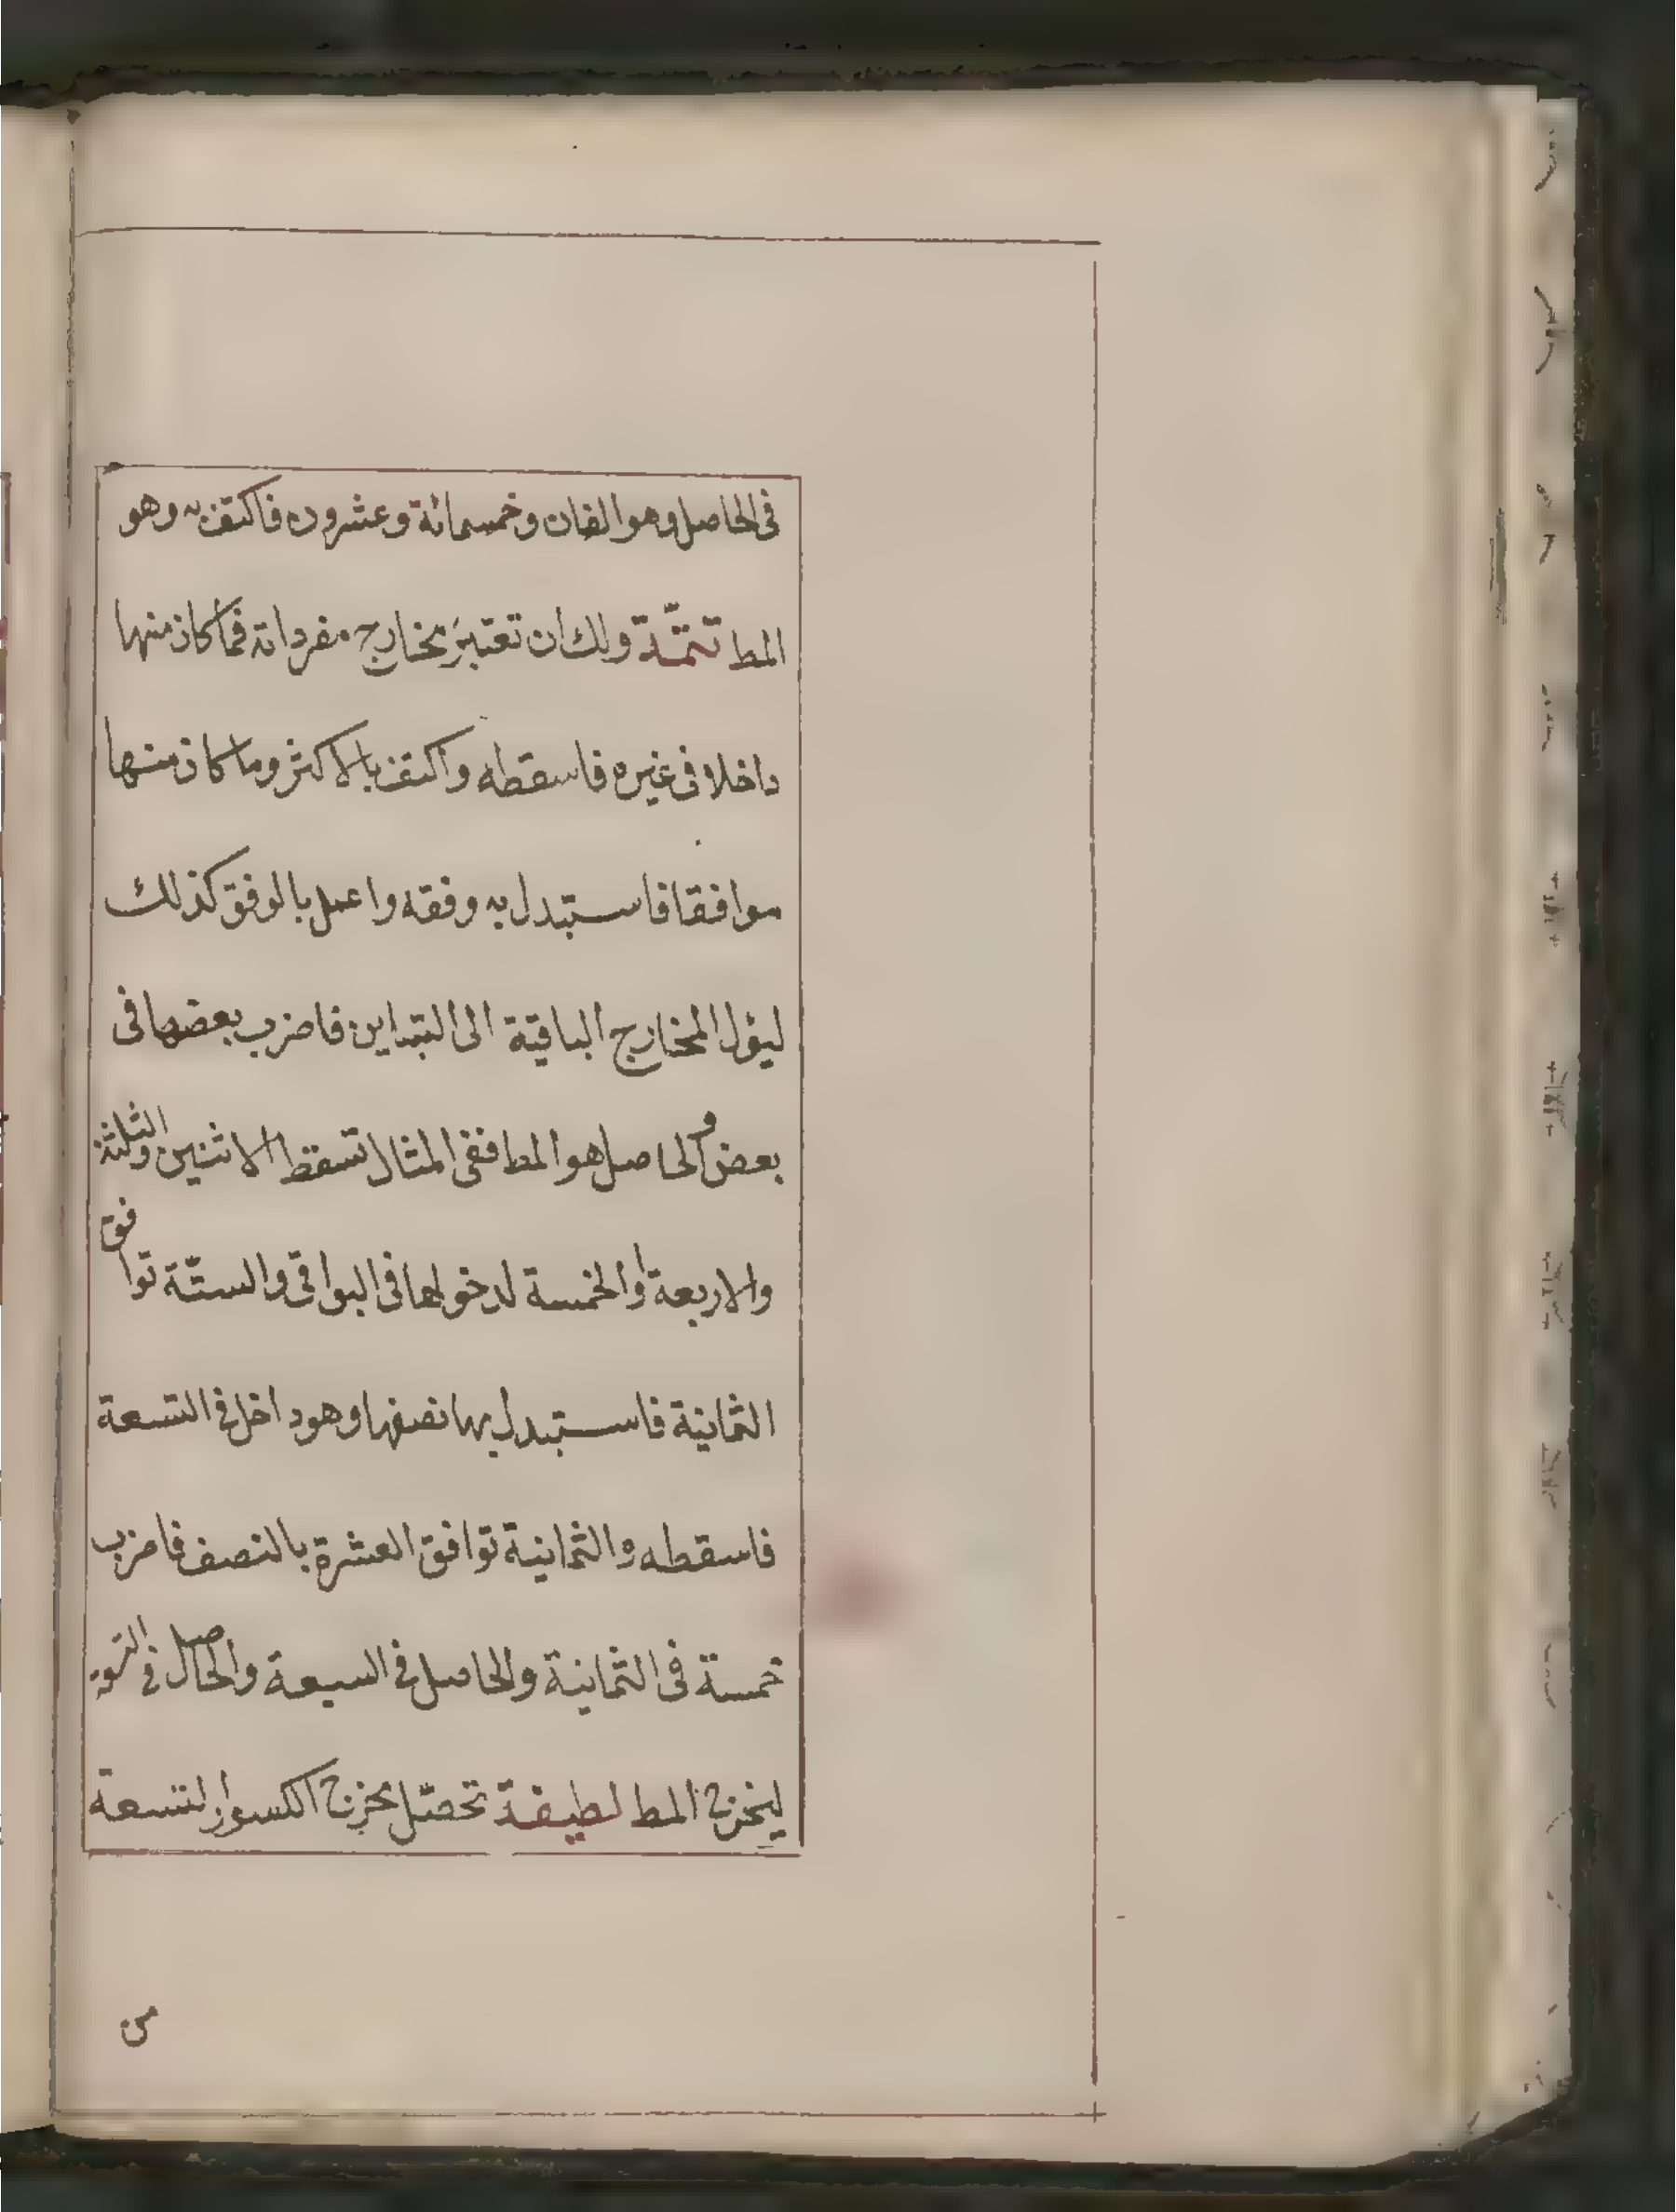 فى الحاصل وهو الفان وخمسمائة وعشرون فاكتف به وهو
المط تتمّة ولك ان تعتبر مخارج مفرداته فما كان منها
داخلا فى غيره فاسقطه واكتف بالاكثر وما كان منها
موافقا فاستبدل به وفقه واعمل بالوفق كذلك
ليؤل المخارج الباقية الى التباين فاضرب بعضها فى
بعض والحاصل هو المط ففى المثال تسقط الاثنين والثلثة
والاربعة والخمسة لدخولها فى البواقى والستّة توافق
الثمانية فاستبدل بها نصفها وهو داخل فى التسعة
فاسقطه والثمانية توافق العشرة بالنصف فاضرب
خمسة فى الثمانية والحاصل فى السبعة والحاصل فى التسعة
ليخرج المط لطيفة تحصّل مخرج الكسور التسعة
من